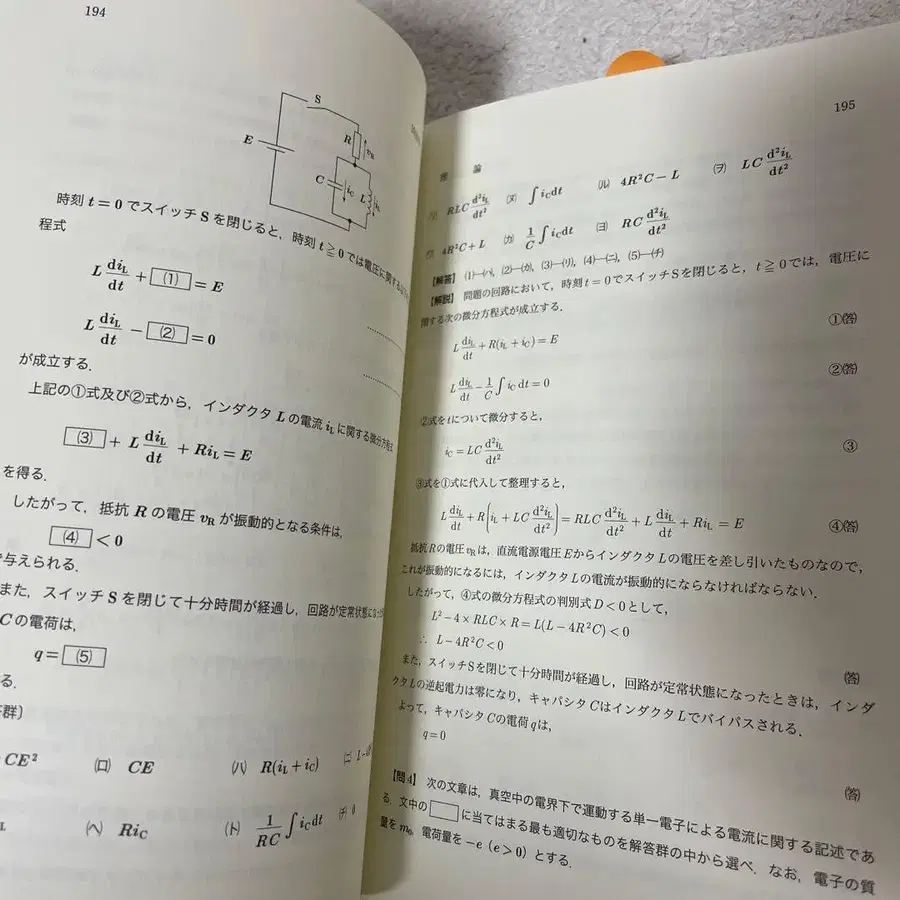 194
S
E
R
v_R
C
i_C
L
i_L
時刻 t = 0 でスイッチ S を閉じると，時刻 t ≧ 0 では電圧に関する
程式
L di_L/dt + (1) = E
L di_L/dt − (2) = 0
が成立する．
上記の①式及び②式から，インダクタ L の電流 i_L に関する微分方程式
(3) + L di_L/dt + Ri_L = E
を得る．
したがって，抵抗 R の電圧 v_R が振動的となる条件は，
(4) < 0
で与えられる．
また，スイッチ S を閉じて十分時間が経過し，回路が定常状態になった
C の電荷は，
q = (5)
る．
答群〕
CE² (ロ) CE (ハ) R(i_L + i_C) (ニ) L −
(ヘ) Ri_C (ト) 1/RC ∫ i_C dt (チ) 0
195
理 論
RLC d²i_L/dt² (ヌ) ∫ i_C dt (ル) 4R²C − L (ヲ) LC d²i_L/dt²
4R²C + L (カ) 1/C ∫ i_C dt (ヨ) RC d²i_L/dt²
【解答】 (1)―(ハ), (2)―(カ), (3)―(リ), (4)―(ニ), (5)―(チ)
【解説】 問題の回路において，時刻 t = 0 でスイッチ S を閉じると，t ≧ 0 では，電圧に
関する次の微分方程式が成立する．
L di_L/dt + R(i_L + i_C) = E ①(答)
L di_L/dt − 1/C ∫ i_C dt = 0 ②(答)
②式を t について微分すると，
i_C = LC d²i_L/dt² ③
③式を①式に代入して整理すると，
L di_L/dt + R(i_L + LC d²i_L/dt²) = RLC d²i_L/dt² + L di_L/dt + Ri_L = E ④(答)
抵抗 R の電圧 v_R は，直流電源電圧 E からインダクタ L の電圧を差し引いたものなので，
これが振動的になるには，インダクタ L の電流が振動的にならなければならない．
したがって，④式の微分方程式の判別式 D < 0 として，
L² − 4 × RLC × R = L(L − 4R²C) < 0
∴ L − 4R²C < 0 (答)
また，スイッチ S を閉じて十分時間が経過し，回路が定常状態になったときは，インダ
クタ L の逆起電力は零になり，キャパシタ C はインダクタ L でバイパスされる．
よって，キャパシタ C の電荷 q は，
q = 0 (答)
【問4】 次の文章は，真空中の電界下で運動する単一電子による電流に関する記述であ
る．文中の に当てはまる最も適切なものを解答群の中から選べ．なお，電子の質
量を m₀，電荷量を −e（e > 0）とする．